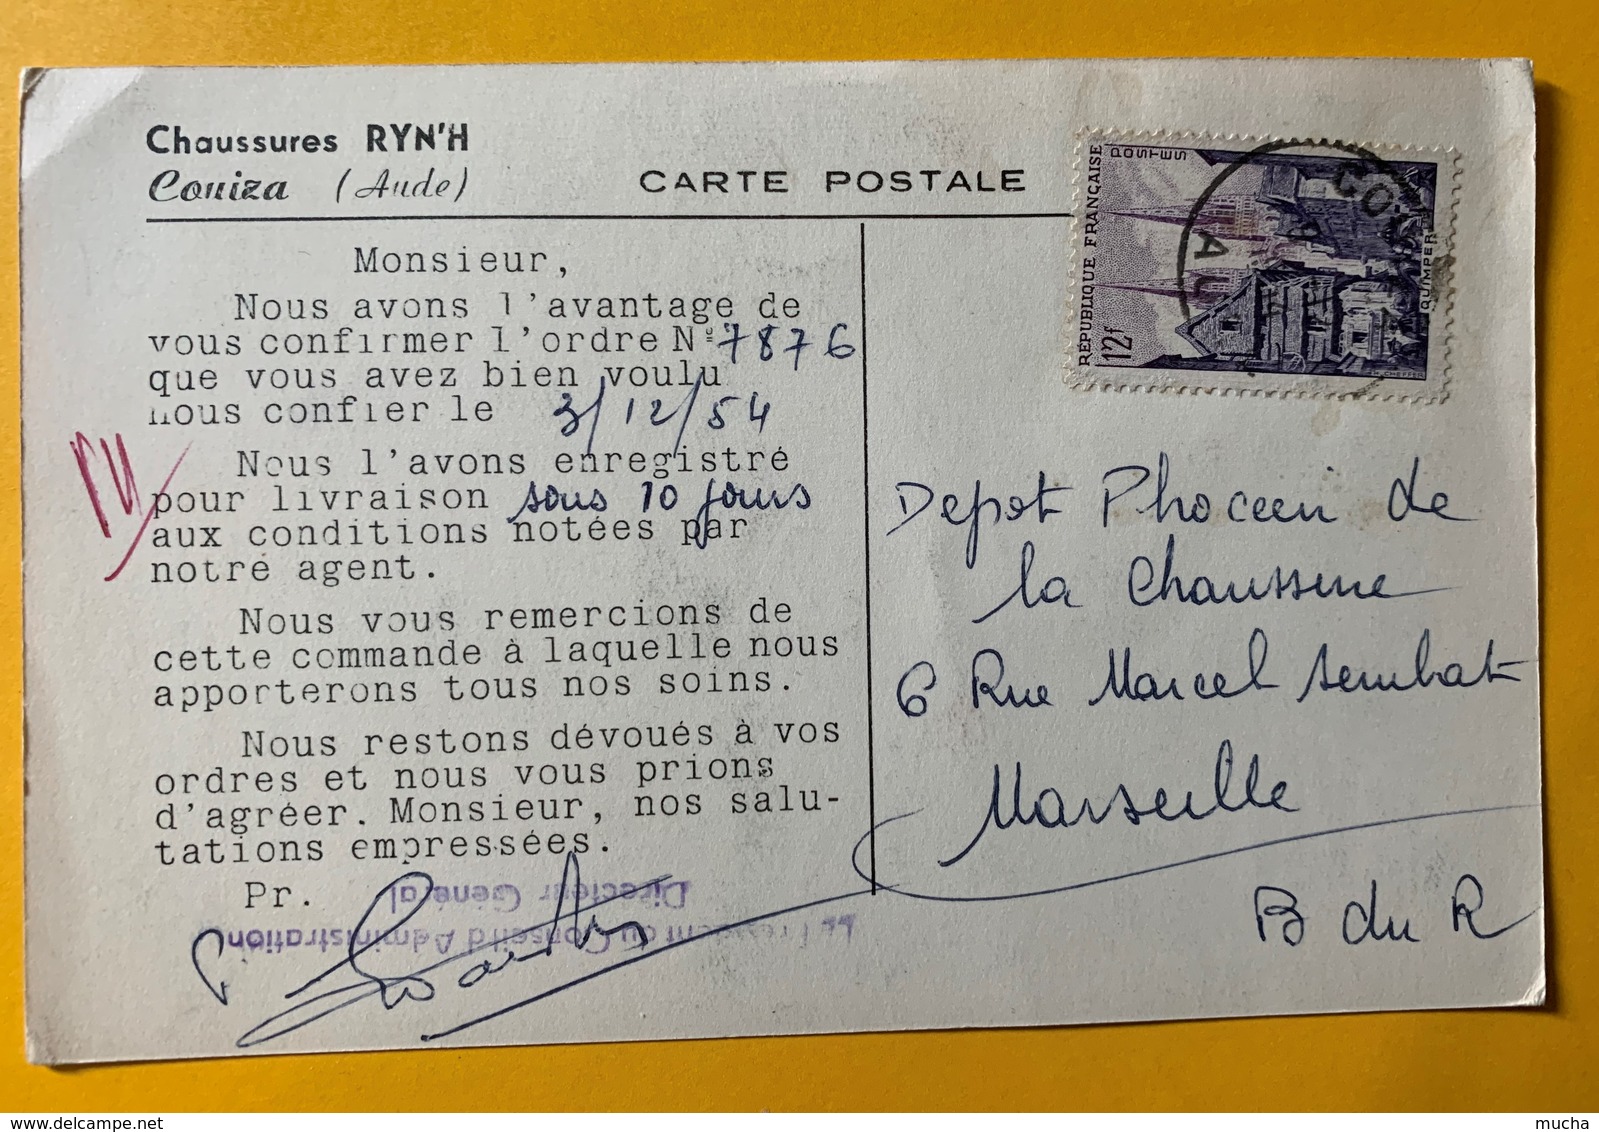 Chaussures RYN'H
Couiza (Aude)
CARTE POSTALE
RÉPUBLIQUE FRANÇAISE
POSTES
12f
QUIMPER
CHEFFER
Monsieur,
Nous avons l'avantage de
vous confirmer l'ordre N° 7876
que vous avez bien voulu
nous confier le 3/12/54
Nous l'avons enregistré
pour livraison sous 10 jours
aux conditions notées par
notre agent.
Nous vous remercions de
cette commande à laquelle nous
apporterons tous nos soins.
Nous restons dévoués à vos
ordres et nous vous prions
d'agréer. Monsieur, nos salu-
tations empressées.
Pr.
Le Président du Conseil d'Administration
Directeur Général
Depot Phoceen de
la Chaussure
6 Rue Marcel Sembat
Marseille
B du R
mucha